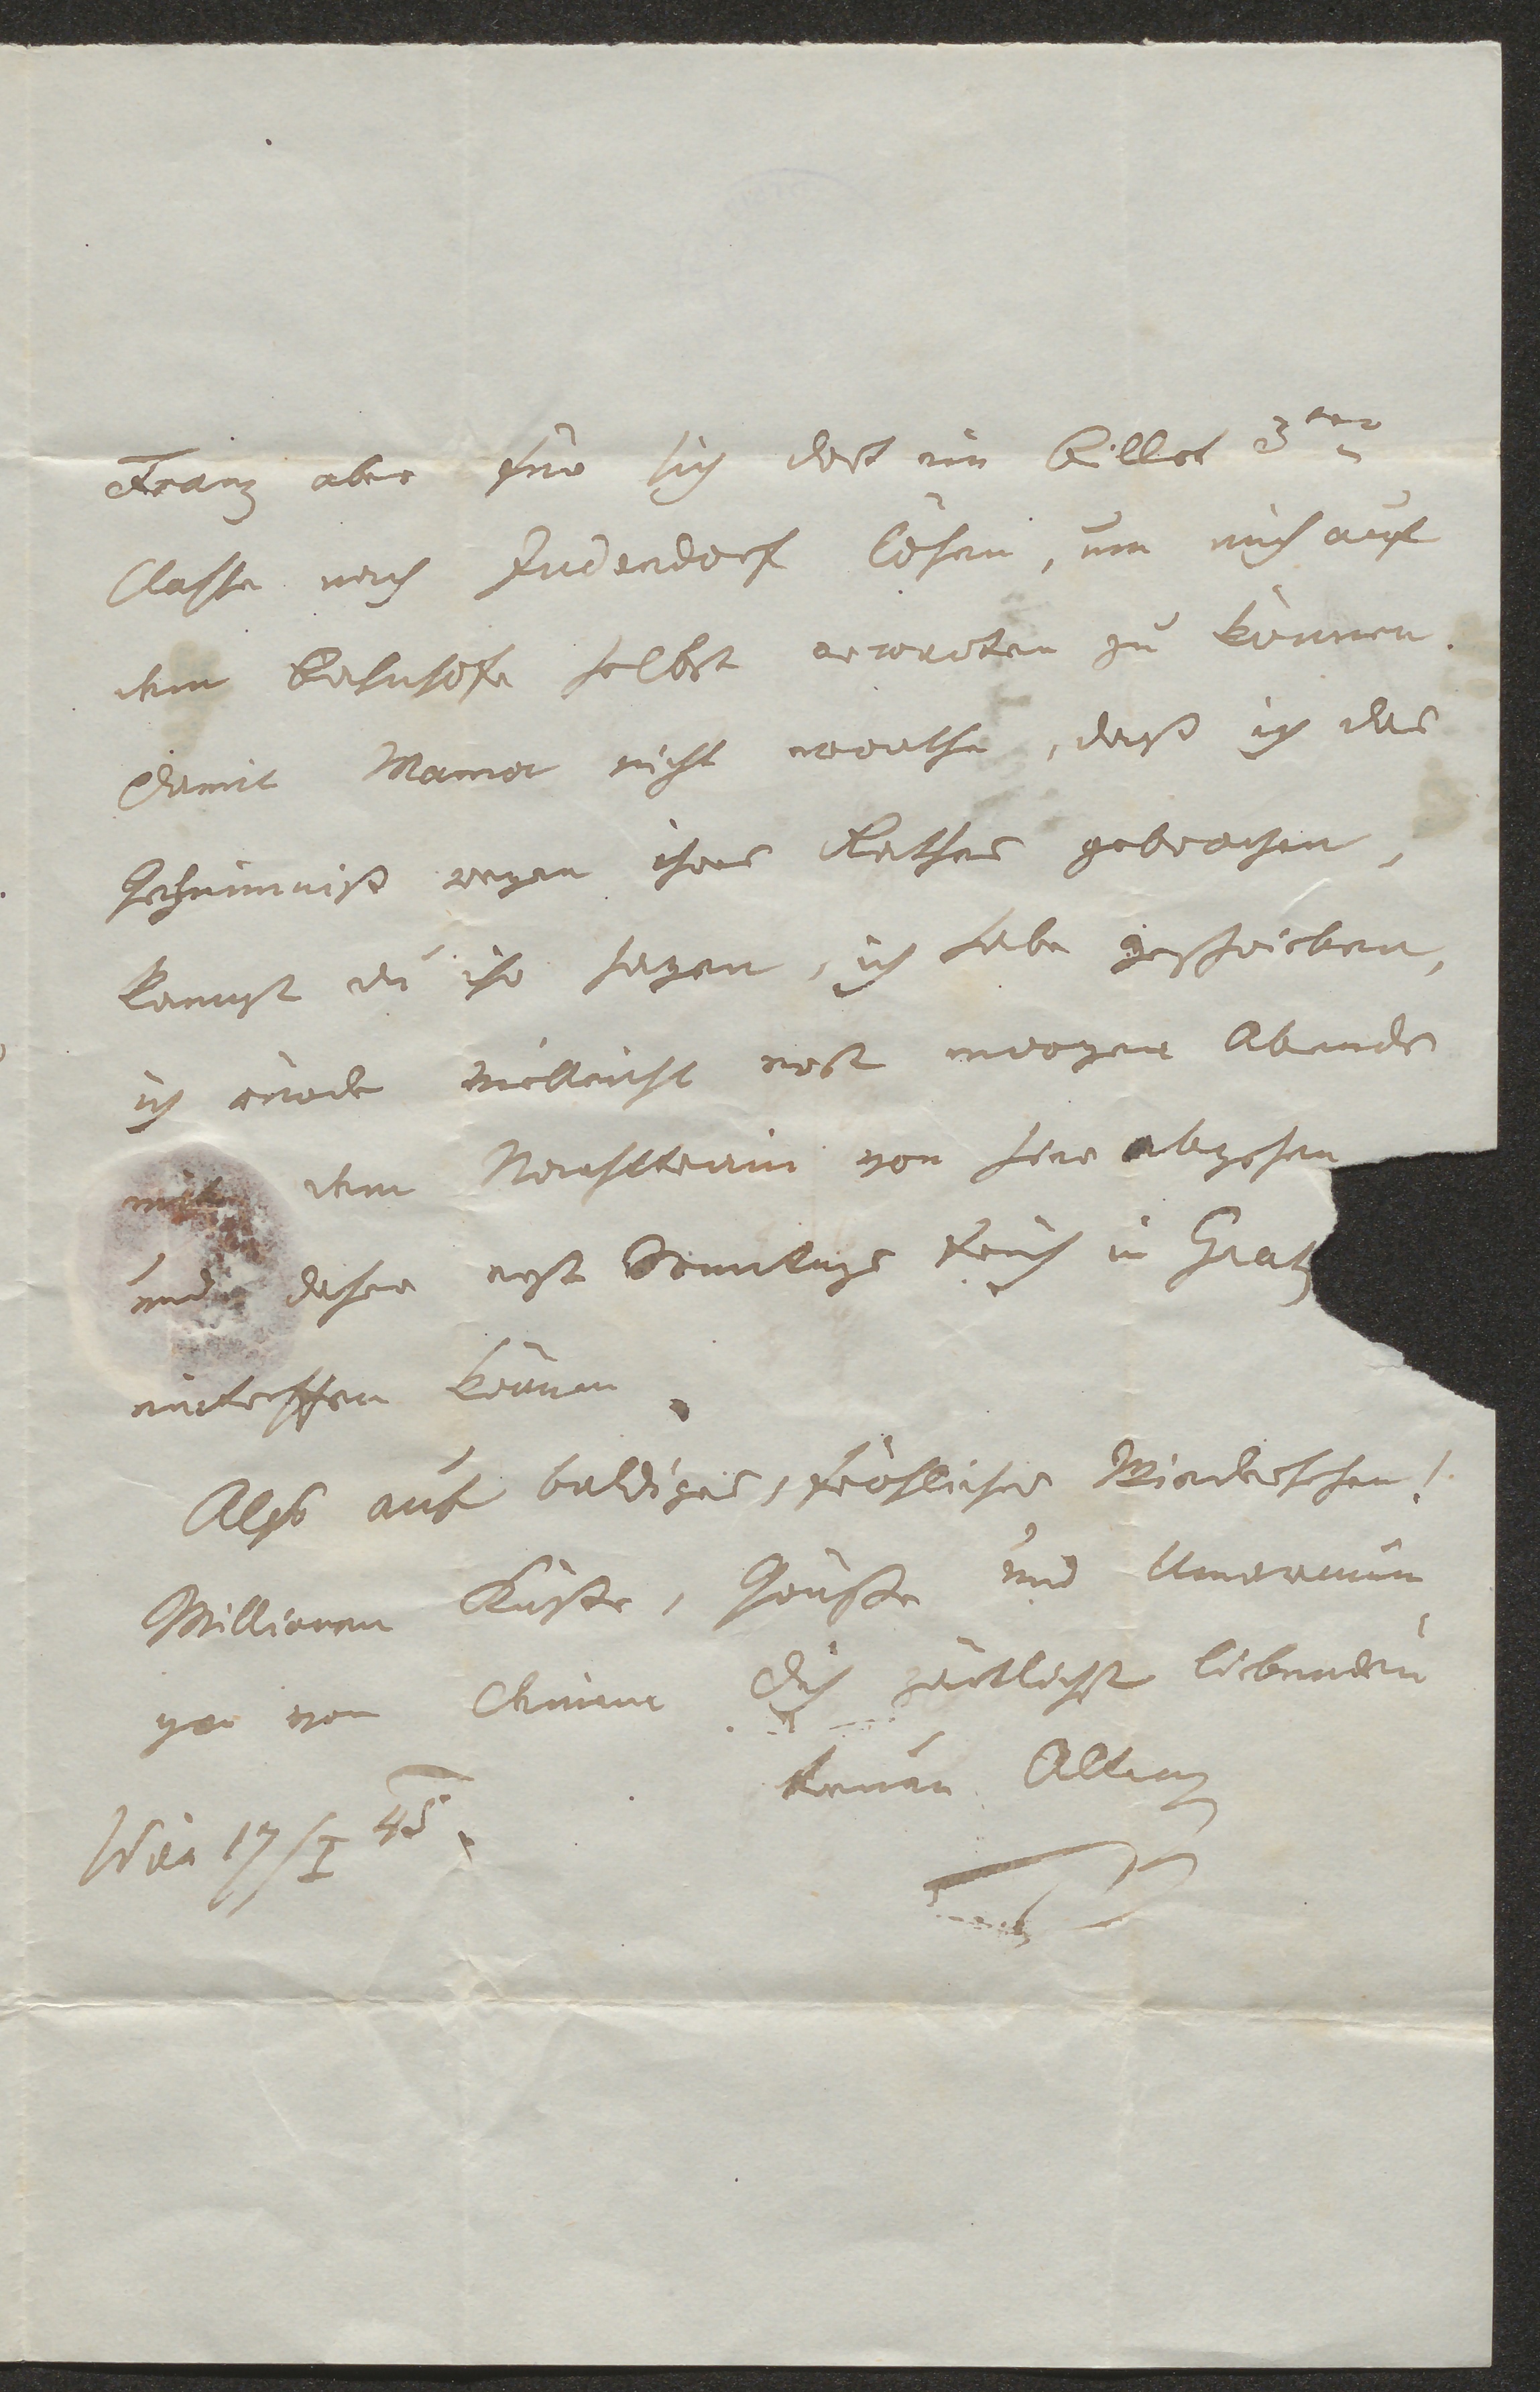 Franz aber für sich dort ein Billet 3ter
Classe nach Judendorf lösen, um mich auf
dem Bahnhofe selbst erwarten zu können.
Damit Mama nicht errathe, daß ich das
Geheimniß wegen ihres Rathes gebrochen,
kannst du ihr sagen, ich habe geschrieben,
ich würde vielleicht erst morgen Abends
mit dem Nachttrain von hier abgehen
und daher erst Sonntags früh in Gratz
eintreffen können.
Also auf baldiges, fröhliches Wiedersehen!
Millionen Küsse, Grüße und Umarmun
gen von Deinem Dich zärtlichst liebenden
treuen Alten
Wien 17/I 45.